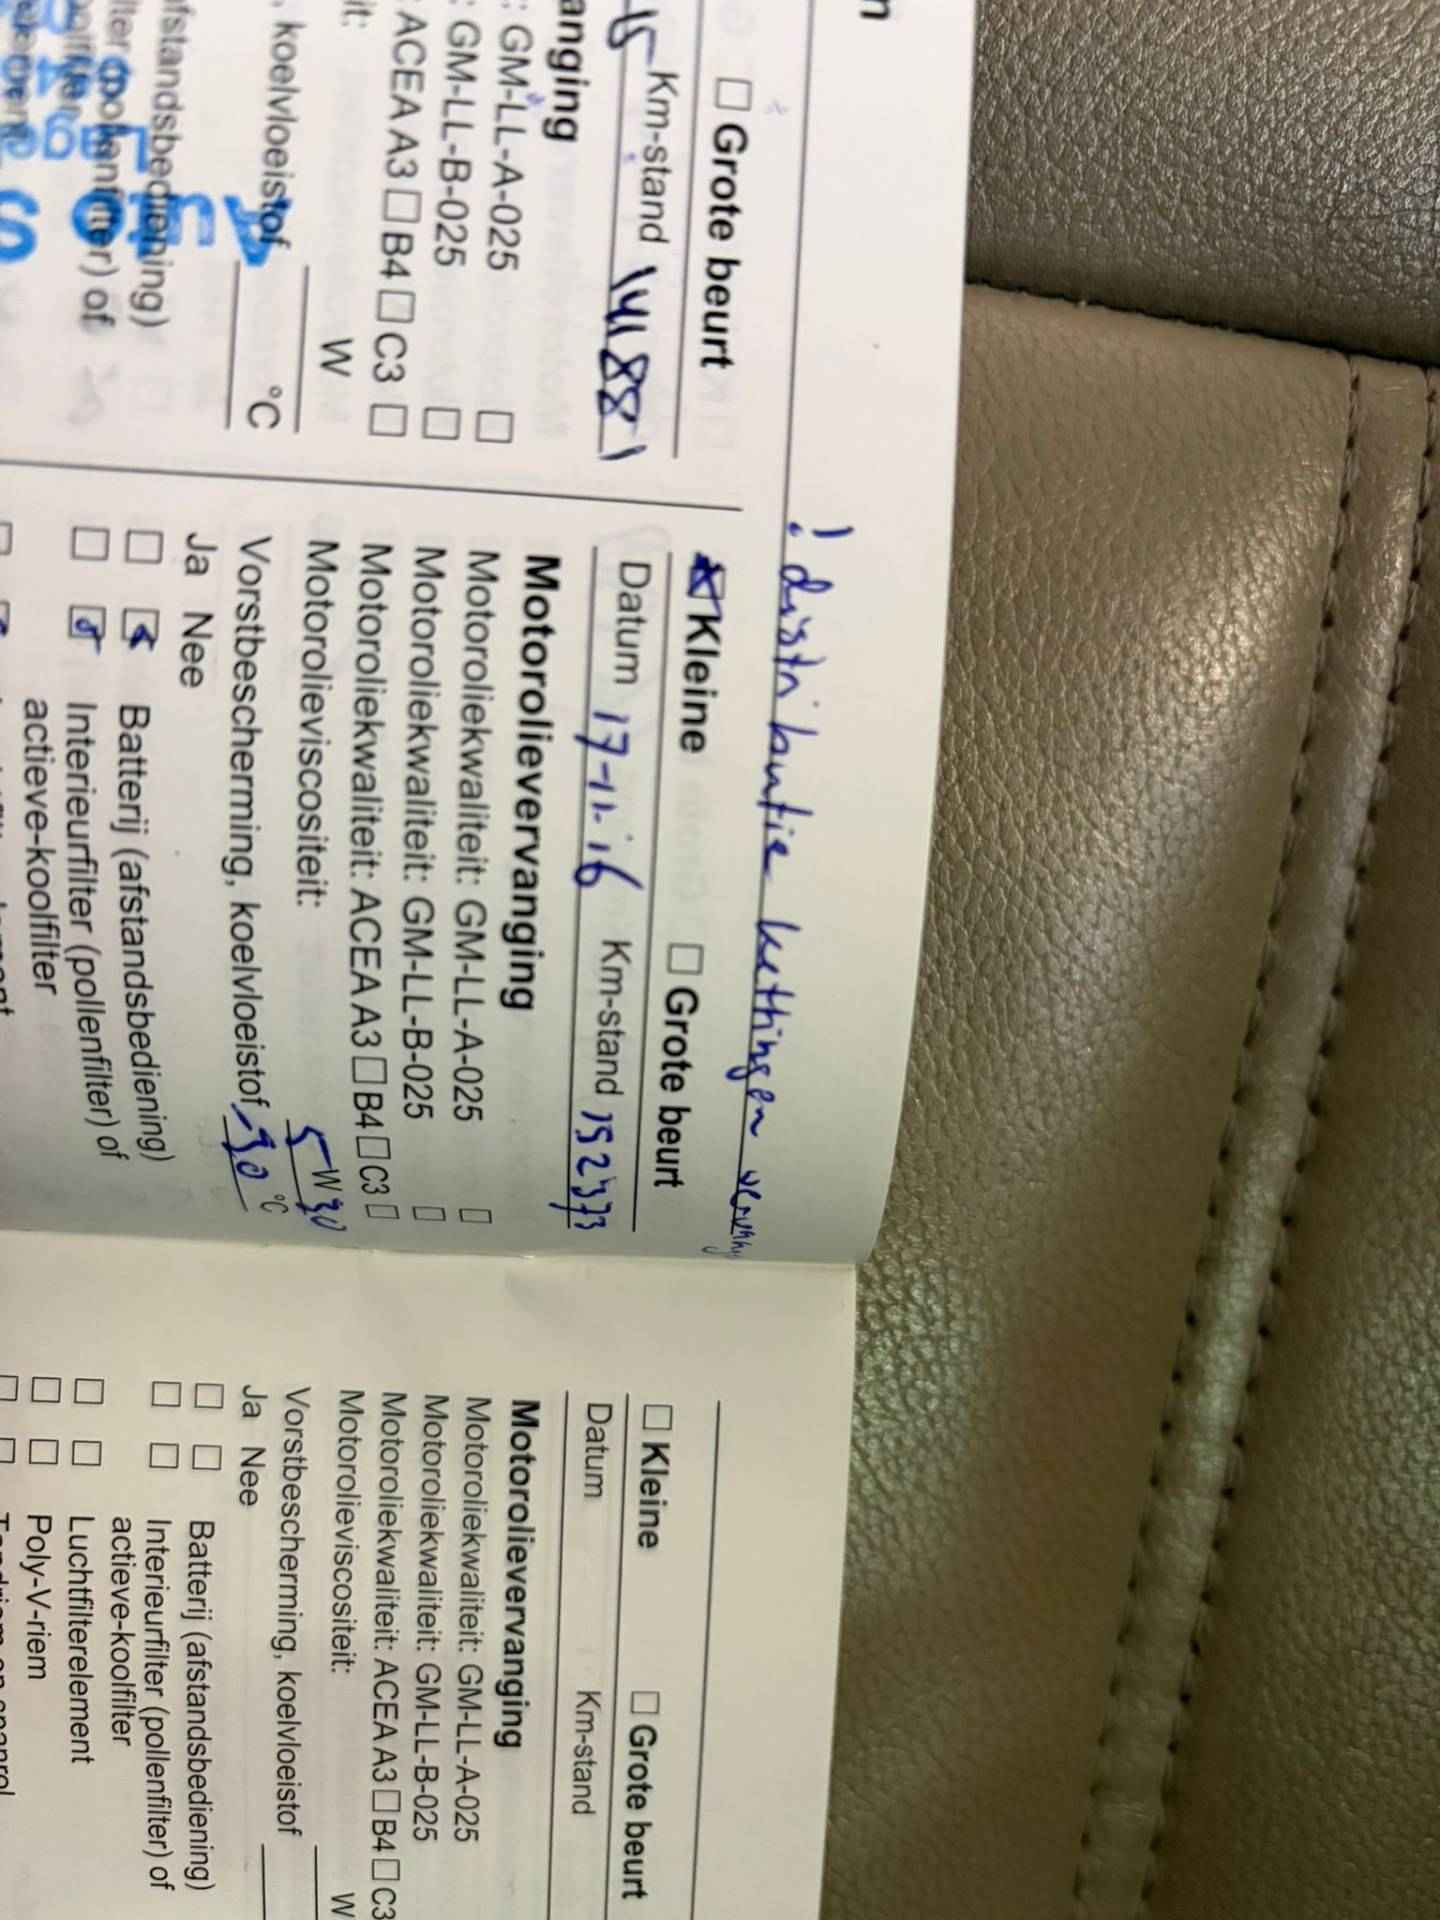 n
□ Grote beurt
15 Km-stand 141881
anging
: GM-LL-A-025 □
: GM-LL-B-025 □
: ACEA A3 □ B4 □ C3 □
it: W
, koelvloeistof °C
fstandsbediening)
lter (pollenfilter) of
! distributie kettingen
☒ Kleine □ Grote beurt
Datum 17-11-16 Km-stand 152373
Motorolievervanging
Motoroliekwaliteit: GM-LL-A-025 □
Motoroliekwaliteit: GM-LL-B-025 □
Motoroliekwaliteit: ACEA A3 □ B4 □ C3 □
Motorolieviscositeit: 5 W 30
Vorstbescherming, koelvloeistof -30 °C
Ja Nee
□ ☑ Batterij (afstandsbediening)
□ ☑ Interieurfilter (pollenfilter) of
actieve-koolfilter
□ Kleine □ Grote beurt
Datum Km-stand
Motorolievervanging
Motoroliekwaliteit: GM-LL-A-025
Motoroliekwaliteit: GM-LL-B-025
Motoroliekwaliteit: ACEA A3 □ B4 □ C3
Motorolieviscositeit: W
Vorstbescherming, koelvloeistof
Ja Nee
□ □ Batterij (afstandsbediening)
□ □ Interieurfilter (pollenfilter) of
actieve-koolfilter
□ □ Luchtfilterelement
□ □ Poly-V-riem